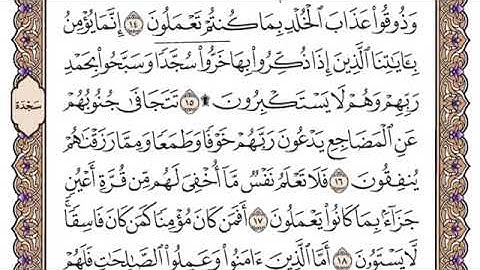 وَذُوقُوا۟ عَذَابَ ٱلْخُلْدِ بِمَا كُنتُمْ تَعْمَلُونَ ١٤ إِنَّمَا يُؤْمِنُ
بِـَٔايَـٰتِنَا ٱلَّذِينَ إِذَا ذُكِّرُوا۟ بِهَا خَرُّوا۟ سُجَّدًا وَسَبَّحُوا۟ بِحَمْدِ
رَبِّهِمْ وَهُمْ لَا يَسْتَكْبِرُونَ ۩ ١٥ تَتَجَافَىٰ جُنُوبُهُمْ
سَجْدَة
عَنِ ٱلْمَضَاجِعِ يَدْعُونَ رَبَّهُمْ خَوْفًا وَطَمَعًا وَمِمَّا رَزَقْنَـٰهُمْ
يُنفِقُونَ ١٦ فَلَا تَعْلَمُ نَفْسٌ مَّآ أُخْفِىَ لَهُم مِّن قُرَّةِ أَعْيُنٍ
جَزَآءًۢ بِمَا كَانُوا۟ يَعْمَلُونَ ١٧ أَفَمَن كَانَ مُؤْمِنًا كَمَن كَانَ فَاسِقًا ۚ
لَّا يَسْتَوُۥنَ ١٨ أَمَّا ٱلَّذِينَ ءَامَنُوا۟ وَعَمِلُوا۟ ٱلصَّـٰلِحَـٰتِ فَلَهُمْ